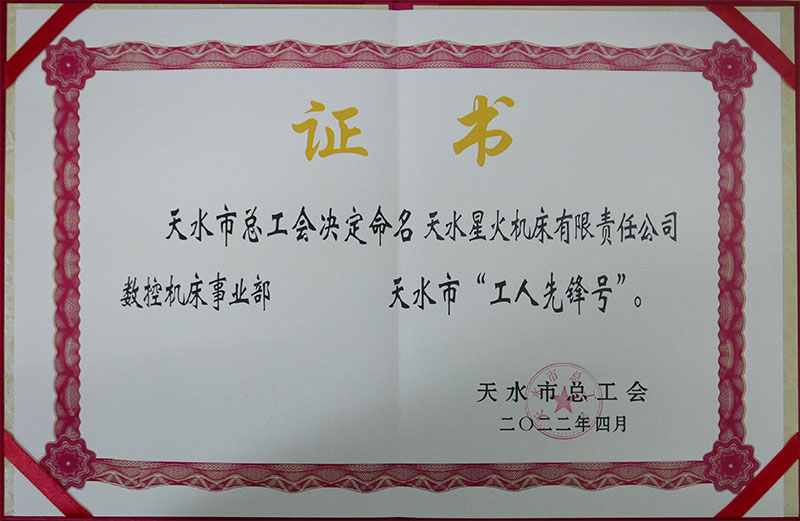 证 书
天水市总工会决定命名 天水星火机床有限责任公司
数控机床事业部 天水市“工人先锋号”。
天水市总工会
二〇二二年四月